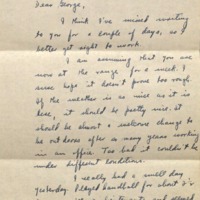 Dear George,
I think I've missed writing
to you for a couple of days, so I
better get right to work.
I am assuming that you are
now at the range for a week. I
sure hope it doesn't prove too rough.
If the weather is as nice as it is
here, it should be pretty nice. It
should be almost a welcome change to
be outdoors after so many years working
in an office. Too bad it couldn't be
under different conditions.
I really had a swell day
yesterday. Played handball for about 3